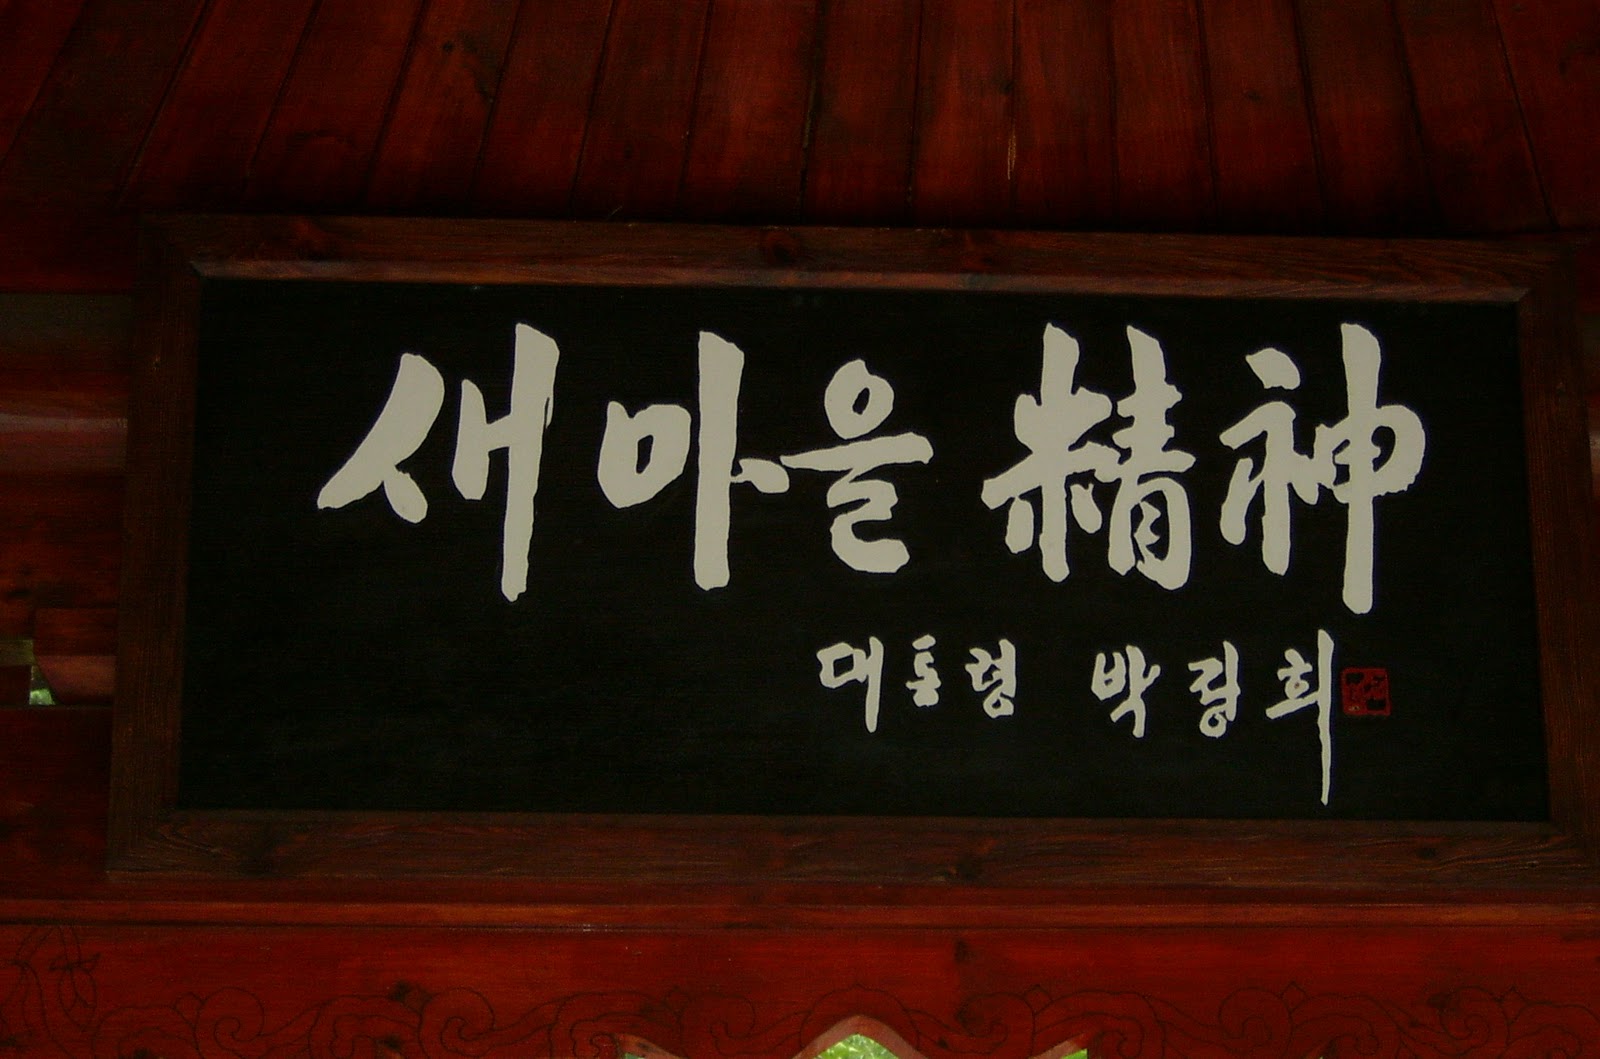 새마을 精神
대통령 박정희